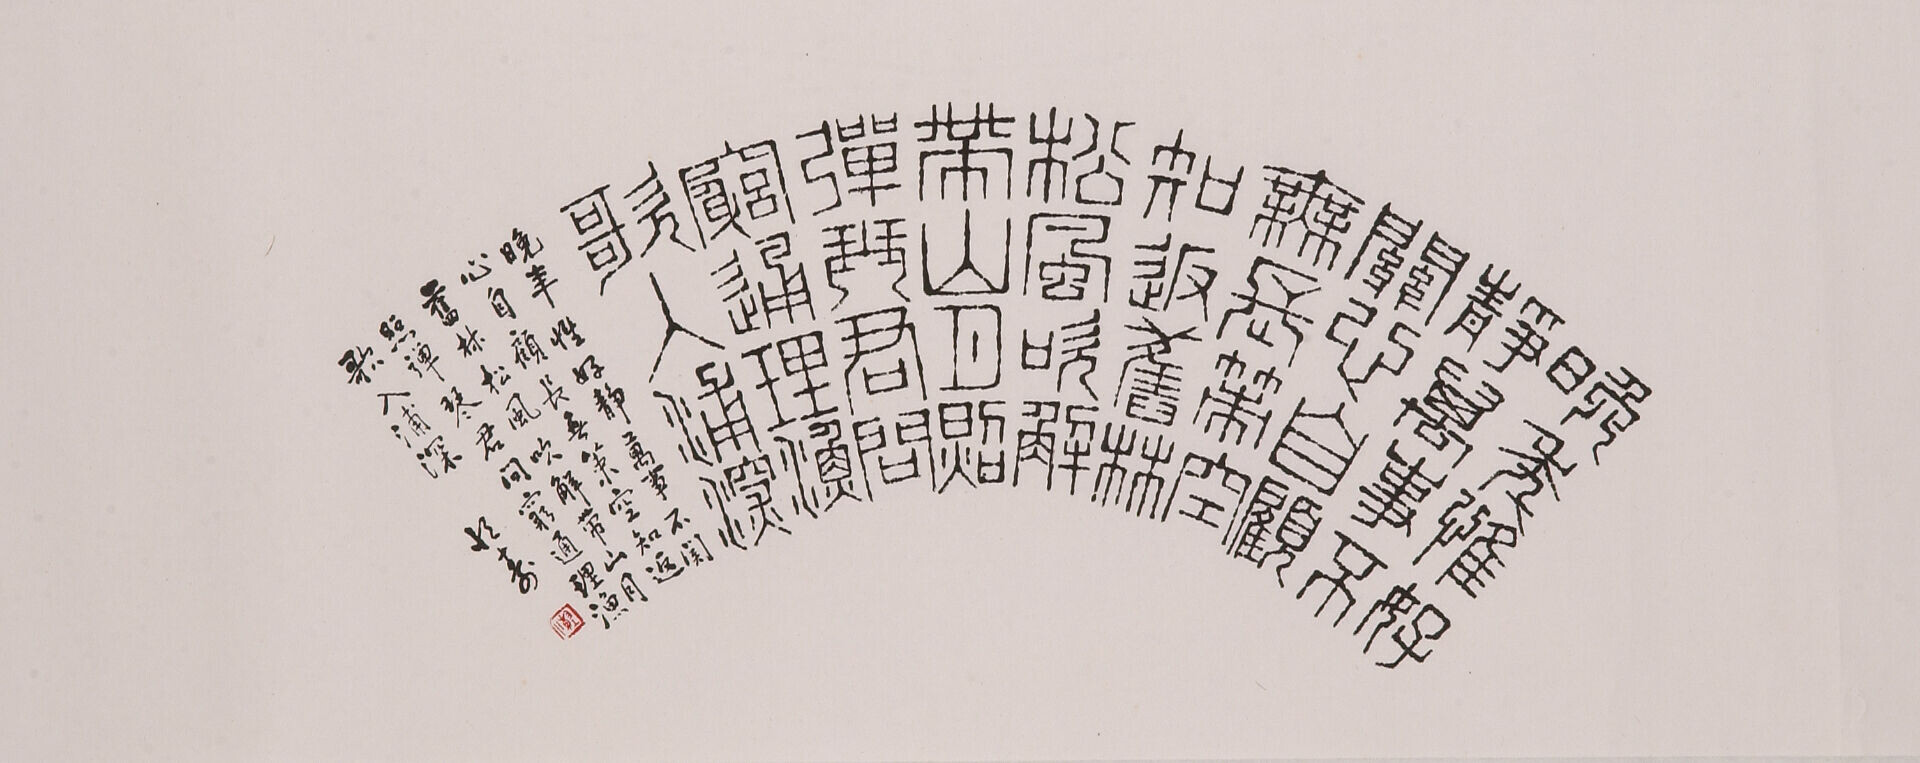 晚年惟好
靜萬事不
關心自顧
無長策空
知返舊林
松風吹解
帶山月照
彈琴君問
窮通理漁
歌人浦深
晚年惟好靜萬事不関
心自顧長無策空知返
舊林松風吹解帶山月
照彈琴君問窮通理漁
歌入浦深